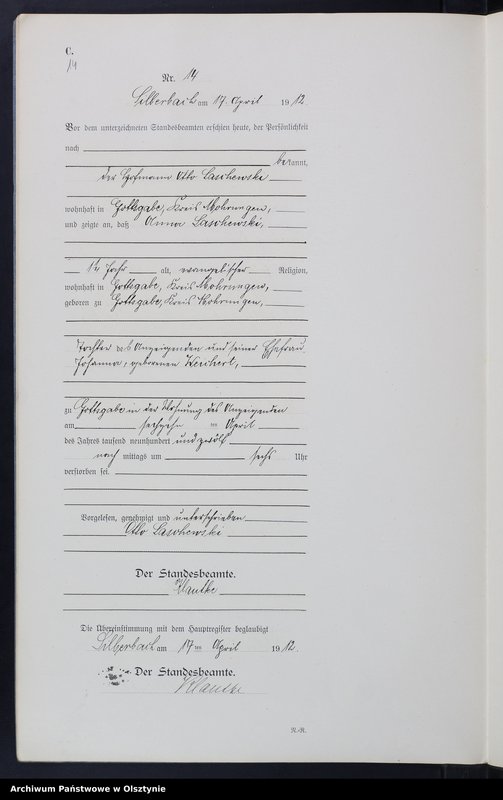 C.
14
Nr. 14
Silberbach am 17. April 1912.
Vor dem unterzeichneten Standesbeamten erschien heute, der Persönlichkeit
nach
bekannt,
der Hofmann Otto Laschewski
wohnhaft in Gottsgabe, Kreis Mohrungen,
und zeigte an, daß Anna Laschewski,
Jahr alt, evangelischer Religion,
wohnhaft in Gottsgabe, Kreis Mohrungen,
geboren zu Gottsgabe, Kreis Mohrungen,
Tochter des Anzeigenden und seiner Ehefrau
Johanna, geborenen Weichert,
zu Gottsgabe in der Wohnung des Anzeigenden
am sechzehn ten April
des Jahres tausend neunhundert und zwölf
nach mittags um sechs Uhr
verstorben sei.
Vorgelesen, genehmigt und unterschrieben
Otto Laschewski
Der Standesbeamte.
Klautke
Die Übereinstimmung mit dem Hauptregister beglaubigt
Silberbach am 17 ten April 1912.
Der Standesbeamte.
Klautke
N.-R.
Archiwum Państwowe w Olsztynie